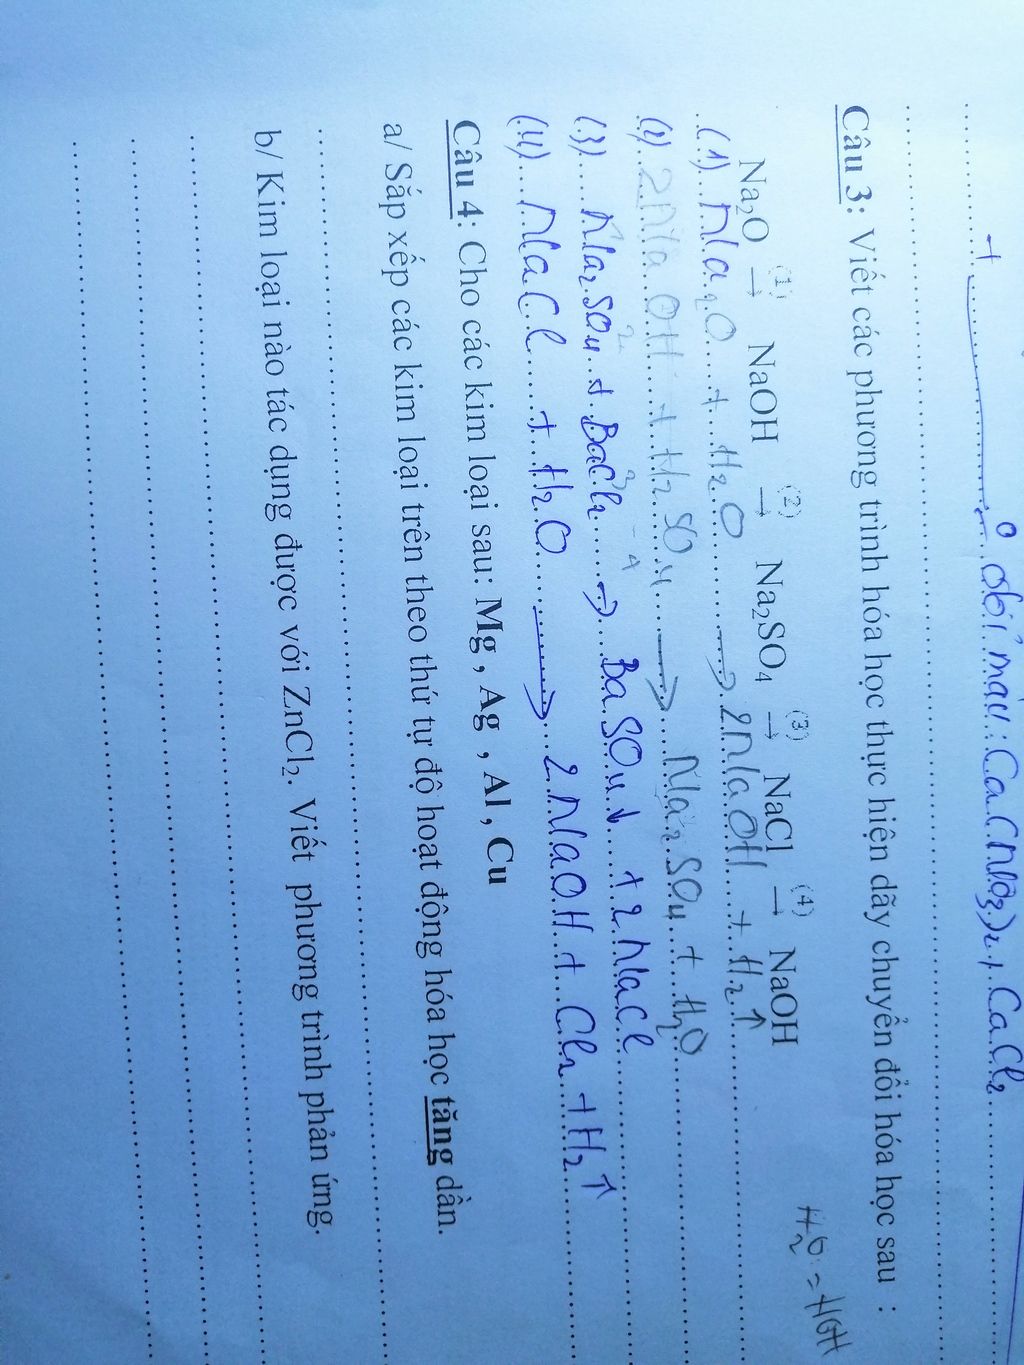 + → đổi màu: Ca(NO3)2, CaCl2
Câu 3: Viết các phương trình hóa học thực hiện dãy chuyển đổi hóa học sau :
Na2O (1)→ NaOH (2)→ Na2SO4 (3)→ NaCl (4)→ NaOH
H2O = HOH
(1) Na2O + H2O → 2NaOH + H2↑
(2) 2NaOH + H2SO4 → Na2SO4 + H2O
(3) Na2SO4 + BaCl2 → BaSO4↓ + 2NaCl
(4) NaCl + H2O → 2NaOH + Cl2 + H2↑
Câu 4: Cho các kim loại sau: Mg , Ag , Al , Cu
a/ Sắp xếp các kim loại trên theo thứ tự độ hoạt động hóa học tăng dần.
b/ Kim loại nào tác dụng được với ZnCl2. Viết phương trình phản ứng.